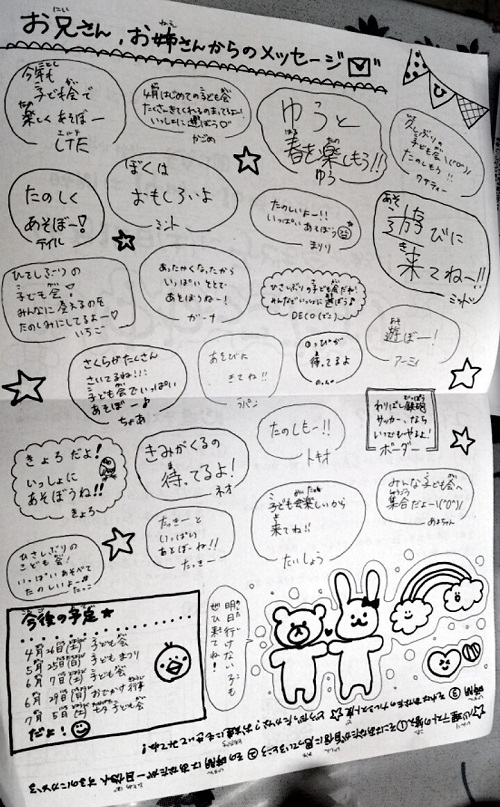 お兄さん、お姉さんからのメッセージ
今年も
子ども会で
楽しくあそぼー
LTE
4月はじめての子ども会
たくさんきてくれるのまってるよー!
いっしょに遊ぼう♡
かごめ
ゆうと
春を楽しもう!!
ゆう
久しぶりの
子ども会!\(^0^)/
たのしもう!!
ワナティー
たのしく
あそぼー!
テイル
ぼくは
おもしろいよ
ミント
たのしいよー!!
いっぱいあそぼう
まりり
遊びに
来てねー!!
ミッドン
ひさしぶりの
子ども会♡
みんなに会えるのを
たのしみにしてるよー♡
いちご
あったかくなったから
いっぱいそとで
あそぼうねー!
ガーナ
ひさしぶりの子ども会だね!
みんなでいっしょに遊ぼう♪
DECO(でこ)
遊ぼー!
アーニィ
さくらがたくさん
さいてるね!!!
子ども会でいっぱい
あそぼー♪
ちょあ
あそびに
きてね!!
ラパン
のっぴが
待ってるよ
わりばし鉄砲
サッカー、なら
いつでもやるよ!
ボーダー
きょろだよ!
いっしょに
あそぼうね!!
きょろ
きみがくるの
待ってるよ!
ネオ
たのしもー!!
トキオ
みんな子ども会へ
集合だよー!\(^0^)/
ひさしぶりの
こども会!
いっぱいあそべて
たのしいよー!!
たっきーと
いっぱい
あそぼーね!!
たっきー
子ども会楽しいから
来てね!!
たいしょう
今後の予定★
4月26日(土) 子ども会
5月25日(日) 子どもまつり
6月7日(土) 子ども会
6月29日(日) おでかけ行事
7月5日(土) 七夕子ども会
だよ!
明日行けない子も
ぜひ来てね!